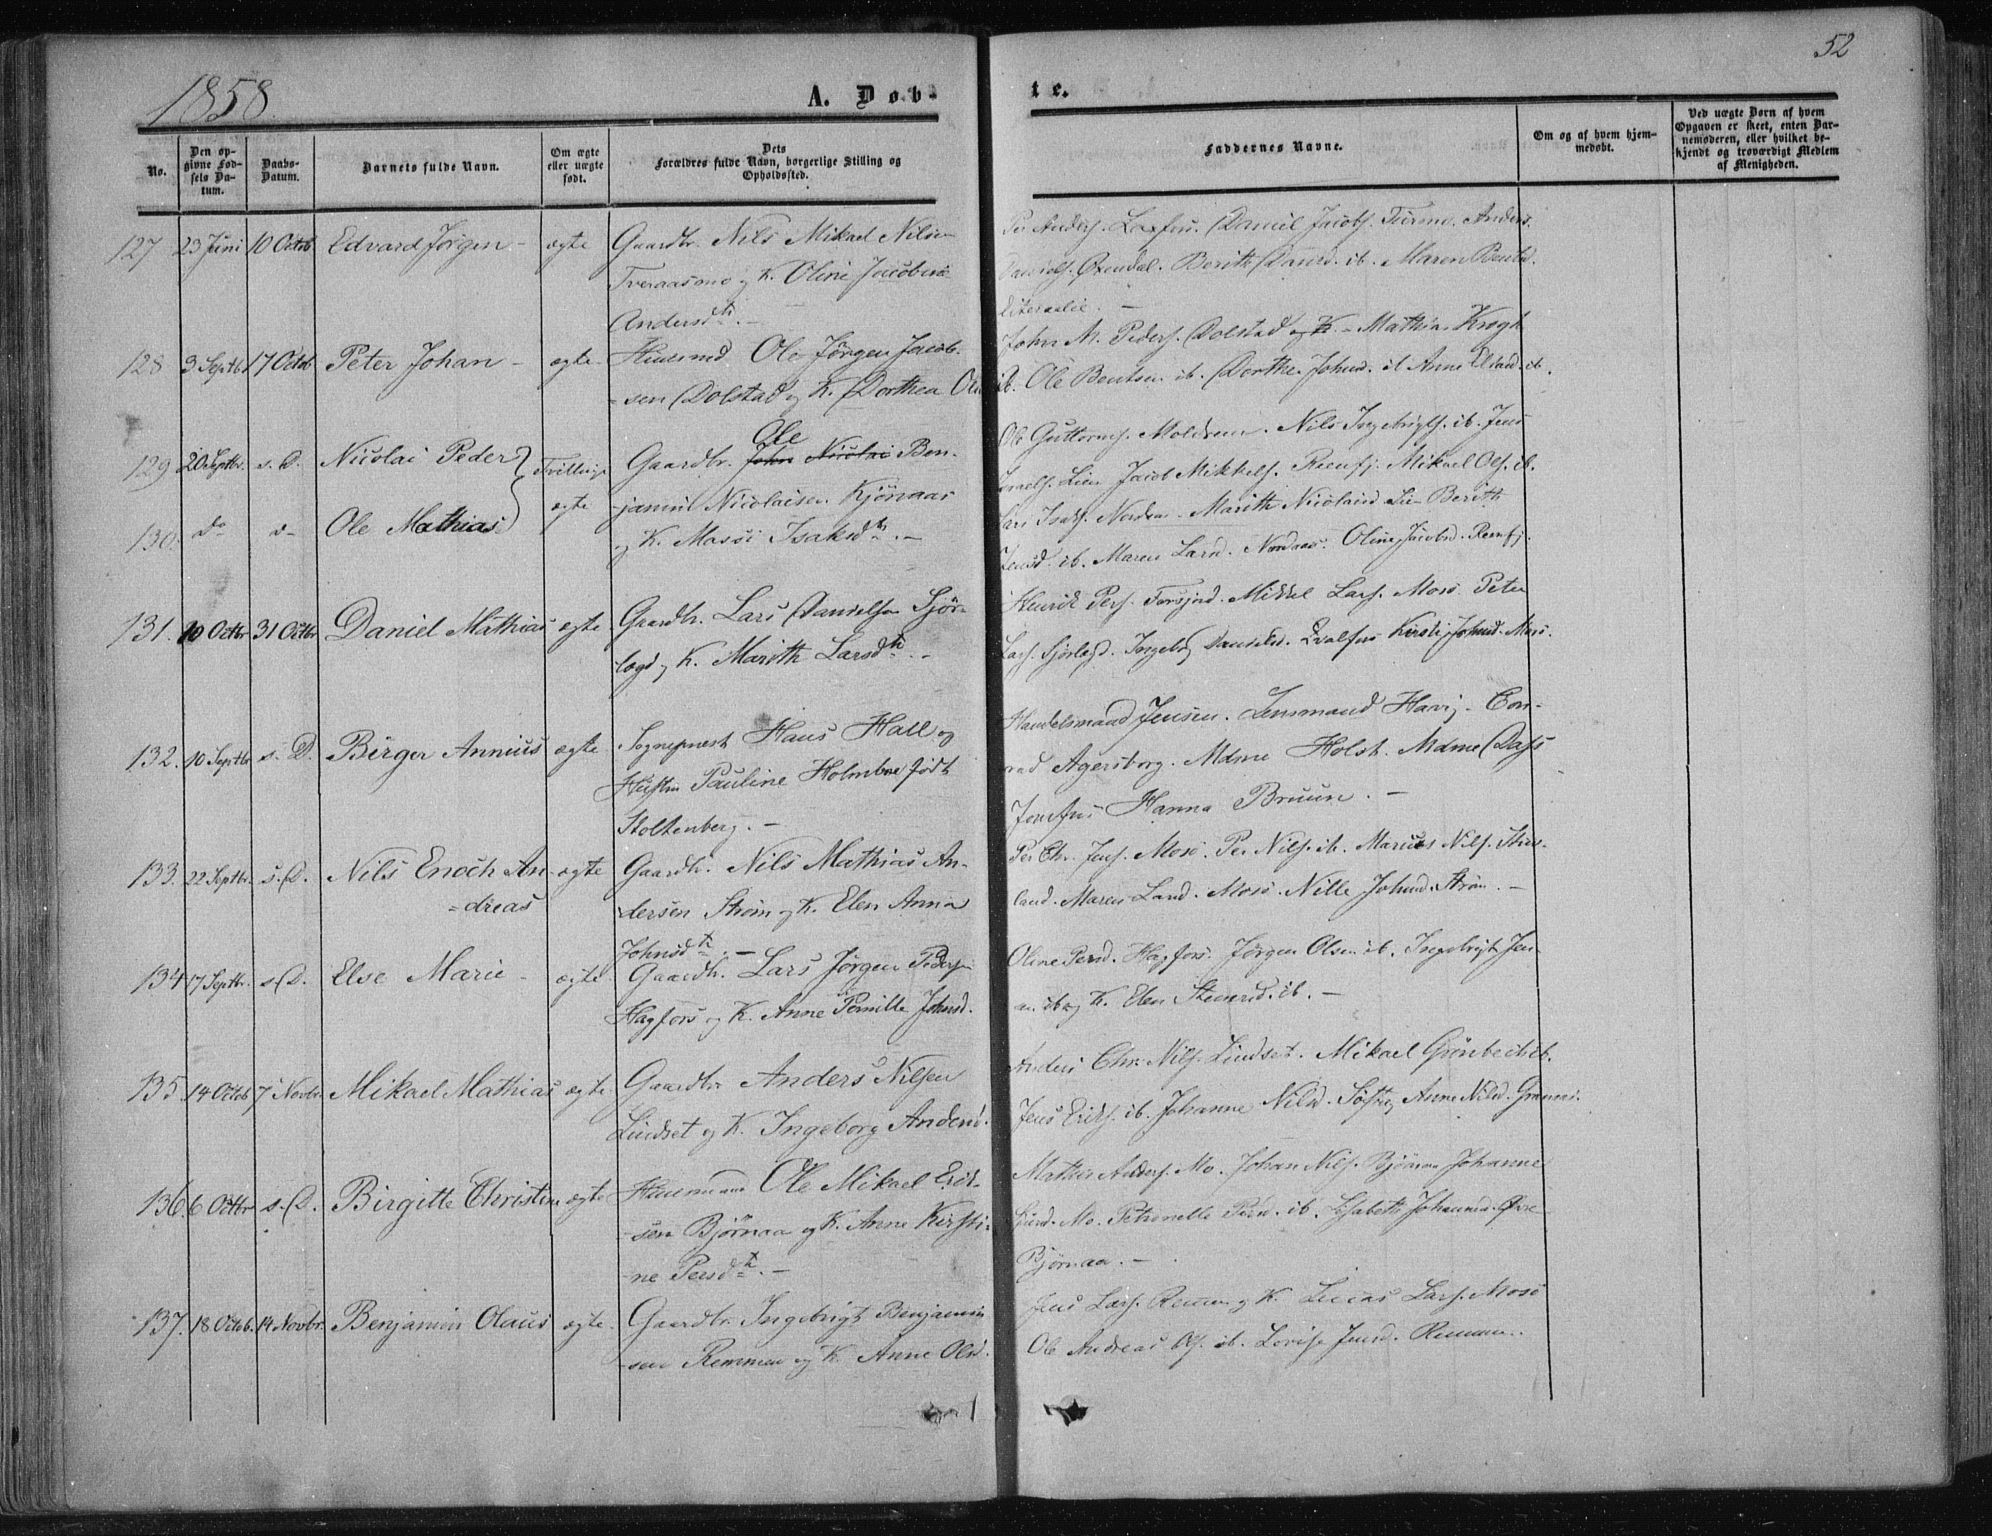 52
1858.
A. Døb-
te.
No.
Den op-
givne Fød-
sels Da-
tum.
Daabs-
Datum.
Barnets fulde Navn.
Om ægte
eller uægte
født.
Dets
Forældres fulde Navn, borgerlige Stilling og
Opholdssted.
Faddernes Navne.
Om og af hvem hjem-
medøbt.
Ved uægte Børn af hvem
Opgaven er skeet, enten Bar-
nemoderen, eller hvilket be-
kjendt og troværdigt Medlem
af Menigheden.
127 23 Juni 10 Octob Edvard Jørgen - ægte Gaardbr. Nils Mikael Nilsen
Tveraasmo og K. Oline Jacobine
Andersdtr. -
Per Anders. Laxfors. Daniel Jacobs. Turmo. Anders
Daniels. Øxendal. Berith Danid. ib. Maren Bentd.
128 3 Septb. 17 Octob Peter Johan - ægte Huusmd Ole Jørgen Jacob-
-sen Dolstad og K. Dorthea Ols
John M. Peders. Dolstad og K. - Mathias Krogh
ib. Ole Bentsen ib. Dorthe Johnd. ib Anne Elisad. ib.
129 20 Septbr. s. D. Nicolai Peder Tvillinge Gaardbr. John Nicolai Ole Ben-
-jamin Nicolaisen Kjønaas
og K. Massi Isaksdtr. -
130. do d- Ole Mathias ægte
Ole Guttorms. Moldrem. Nils Ingebrigts. ib. Jens
Lien Jacob Mikkels. Reenfj. Mikael Ols. ib.
Lars Isaks. Marith Nicolaid Lie Berith
Jensd. ib. Maren Larsd. Oline Jacobd. Reenfj.
131. 10 Octbr 31 Octbr Daniel Mathias ægte Gaardbr. Lars Danielsen Sjør-
-lægd og K. Marith Larsdtr. -
Henrik Pers. Forsjord. Mikkel Lars. Mosø Peter
Lars. Sjørlægd. Ingeborg Kirsti Johnd. Mosø.
132. 10 Septbr s. D. Birger Annius ægte Sognepræst Hans Hall og
Hustru Pauline Holmboe født
Stoltenberg. -
Handelsmand Jensen. Lensmand Havig. Con-
rad Agersborg. Mdme Holst. Mdme Dass
Jomfru Hanna Bruun. -
133. 22 Septbr. s. D. Nils Enoch An-
-dreas ægte Gaardbr. Nils Mathias An-
-dersen Strøm og K. Elen Anna
Johnsdtr. -
Per Chr. Jens. Mosø. Per Nils. ib. Marius Nils.
land. Maren Mosø. Nille Johnd. Strøm. -
134 17 Septbr. s. D. Else Marie - ægte Gaardbr. Lars Jørgen Peders.
Hagfors og K. Anne Pernille Johnsd.
Oline Persd. Hagfors. Jørgen Olsen ib. Ingebrigt Jen-
ib og K. Elen ib. -
135. 14 Octob 7 Novbr. Mikael Mathias ægte Gaardbr Anders Nilsen
Lindset og K. Ingeborg Andersd.
Anders Chr. Nils. Lindset. Mikael Grønbech ib.
Jens Eriks. ib. Johanne Nilsd. Anne Nilsd.
136. 6 Octbr s. D. Birgitte Christine ægte Huusmand Ole Mikael Erik-
-sen Bjørnaa og K. Anne Kirsti-
-ne Persdtr. -
Mathis Anders. Mo. Johan Nils. Bjørnaa Johanne
Mo. Petronelle Persd. ib. Elsabeth Johannd. Øvre
Bjørnaa. -
137. 18 Octob. 14 Novbr. Benjamin Olaus ægte. Gaardbr. Ingebrigt Benjamin
-sen Remmen og K. Anne Olsd.
Jens Lars. Remen og K. Lucas Lars. Mosø
Ole Andreas Ols. ib. Lovise Jensd. Remmen.